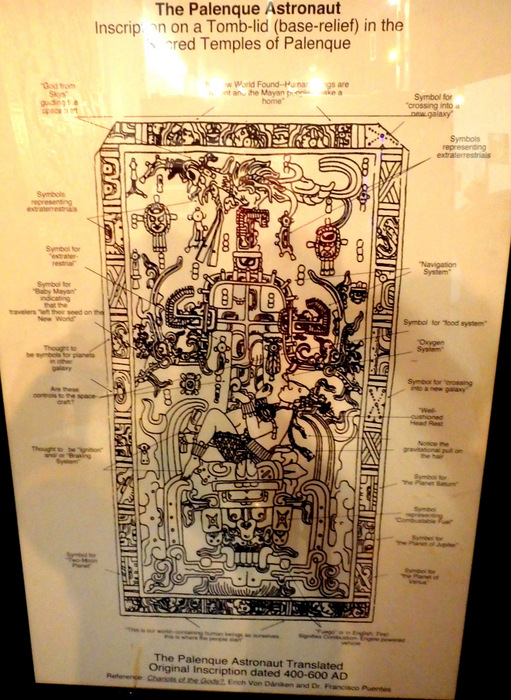 The Palenque Astronaut
Inscription on a Tomb-lid (base-relief) in the
Sacred Temples of Palenque
"God from
Skys"
guiding the
New World Found--Human beings are
and the Mayan
home"
Symbol for
"crossing into a
new galaxy"
Symbols
representing
extraterrestrials
Symbols
representing
extraterrestrials
Symbol for
"extrater-
restrial"
Symbol for
"Baby Mayan"
indicating
that the
travelers "left their seed on the
New World"
Thought to
be symbols for planets
in other
galaxy
Are these
controls to the space-
craft?
Thought to be "Ignition"
and/or "Braking
System"
Symbol for
"Two-Moon
Planet"
"Navigation
System"
Symbol for "food system"
"Oxygen
System"
Symbol for "crossing
into a new galaxy"
"Well-
cushioned
Head Rest
Notice the
gravitational pull on
the hair
Symbol for
"the Planet Saturn"
Symbol
representing
"Combustable Fuel"
Symbol for
"the Planet of Jupiter"
Symbol for
"the Planet of
Venus"
"This is our world-containing human beings as ourselves,
this is where the people start"
"Fuego" is in English, Fire!
Signifies Combustion. Engine powered
vehicle
The Palenque Astronaut Translated
Original Inscription dated 400-600 AD
Reference: Chariots of the Gods?, Erich Von Däniken and Dr. Francisco Puentes